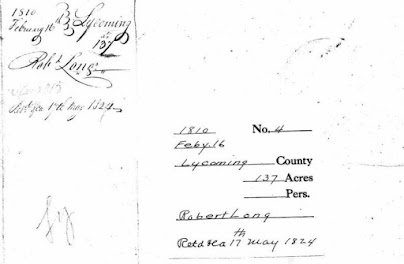 1810
February 16
Lycoming
137
Robt. Long
Retd. &ca 17th May 1824
1810 No. 4
Feby. 16
Lycoming County
137 Acres
Pers.
Robert Long
Retd &ca 17th May 1824